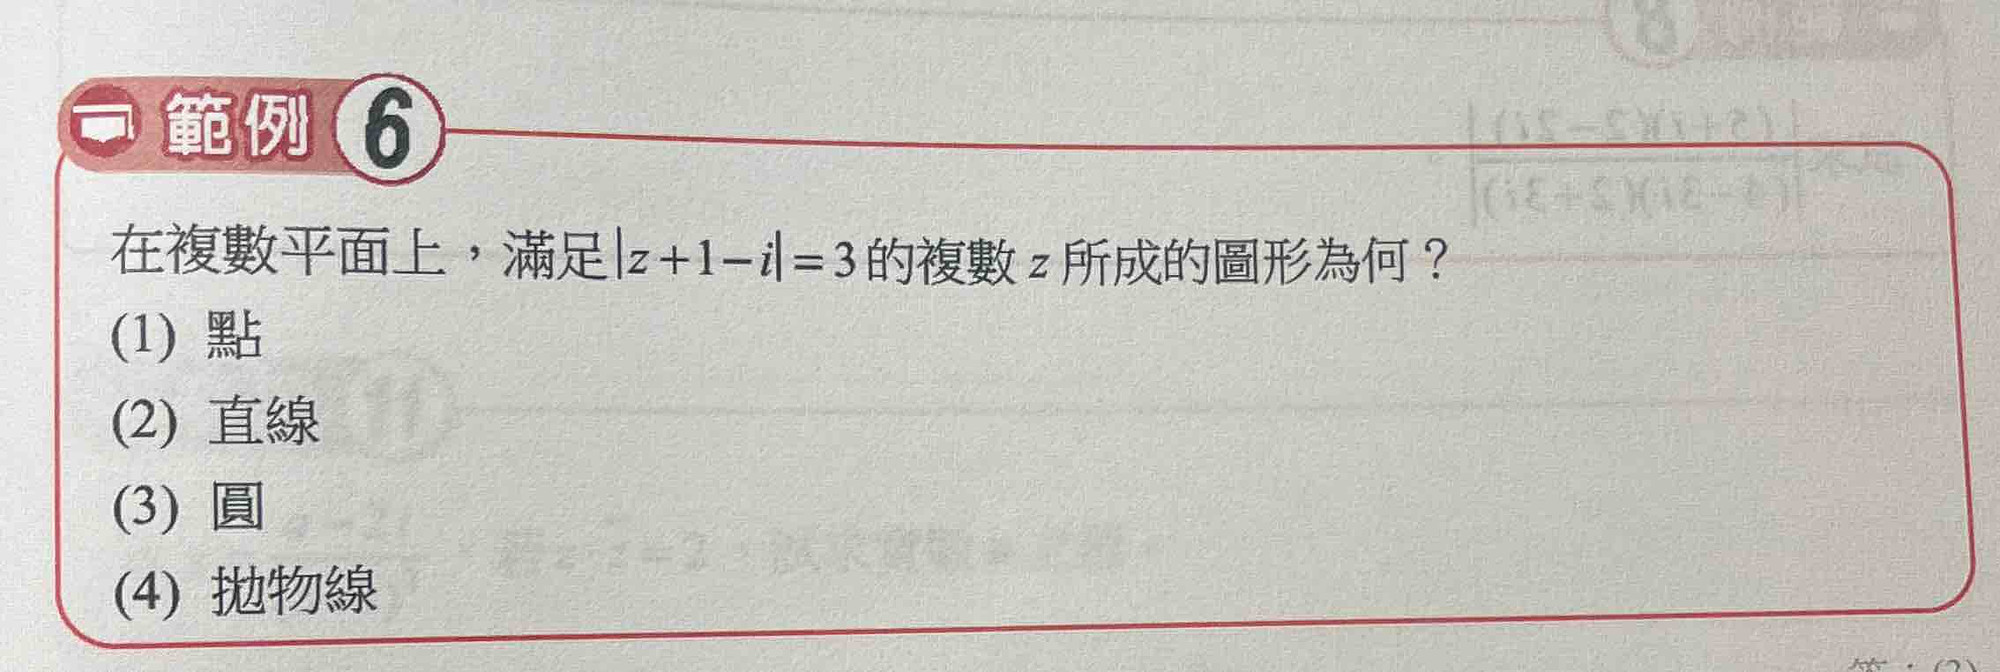 範例 6
在複數平面上，滿足|z+1−i|=3的複數 z 所成的圖形為何？
(1) 點
(2) 直線
(3) 圓
(4) 拋物線